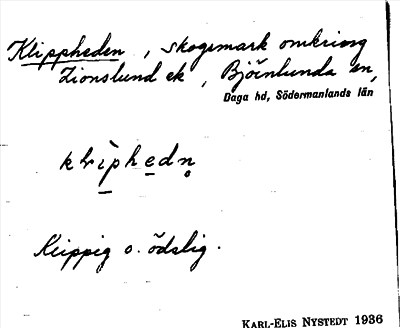 Klippheden, skogsmark omkring
Zionslund ek, Björnlunda sn,
Daga hd, Södermanlands län
Klippig o. ödslig.
KARL-ELIS NYSTEDT 1936